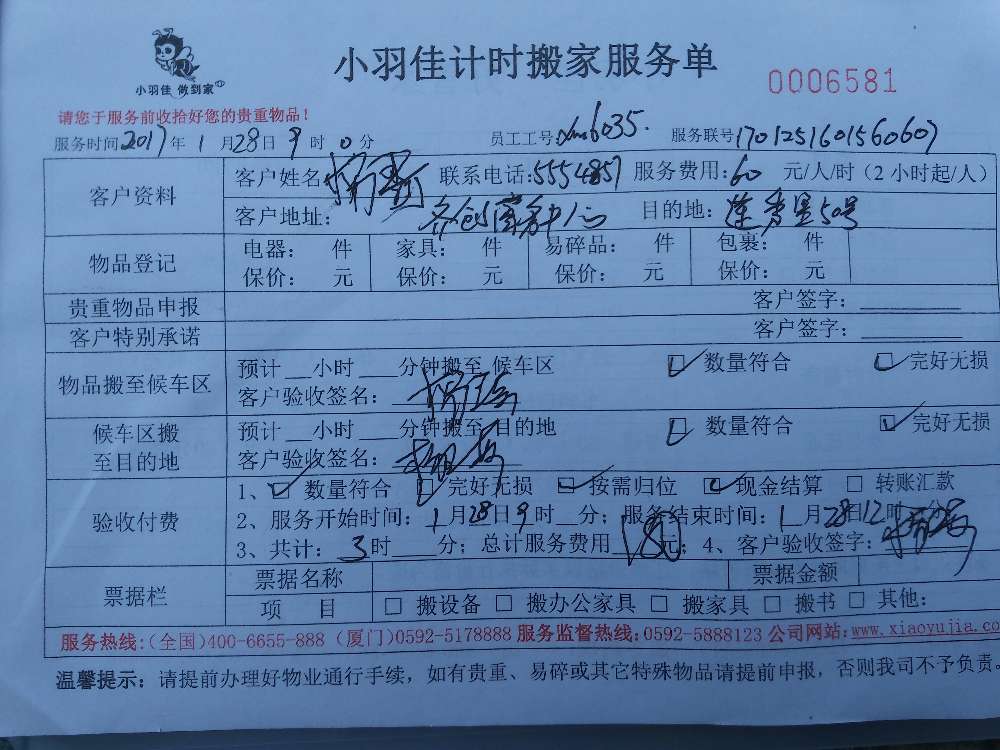 小羽佳 做到家
小羽佳计时搬家服务单
0006581
请您于服务前收拾好您的贵重物品!
服务时间2017年1月28日9时0分 员工工号:xm6035. 服务联号17012516015 60607
客户资料
客户姓名 联系电话:5554857 服务费用:60 元/人/时(2小时起/人)
客户地址: 创 中心 目的地: 莲秀里50号
物品登记
电器: 件 家具: 件 易碎品: 件 包裹: 件
保价: 元 保价: 元 保价: 元 保价: 元
贵重物品申报 客户签字:
客户特别承诺 客户签字:
物品搬至候车区
预计__小时___分钟搬至 候车区 ☑ 数量符合 ☑ 完好无损
客户验收签名:
候车区搬
至目的地
预计__小时___分钟搬至 目的地 ☑ 数量符合 ☑ 完好无损
客户验收签名:
验收付费
1、☑ 数量符合 ☑ 完好无损 ☑ 按需归位 ☑ 现金结算 □ 转账汇款
2、服务开始时间:1月28日9时__分;服务结束时间:1月28日12时 分
3、共计:3时____分;总计服务费用180元;4、客户验收签字:
票据栏
票据名称 票据金额
项 目 □ 搬设备 □ 搬办公家具 □ 搬家具 □ 搬书 □ 其他:
服务热线:(全国)400-6655-888 (厦门)0592-5178888 服务监督热线:0592-5888123 公司网站:www.xiaoyujia.co
温馨提示:请提前办理好物业通行手续,如有贵重、易碎或其它特殊物品请提前申报,否则我司不予负责。